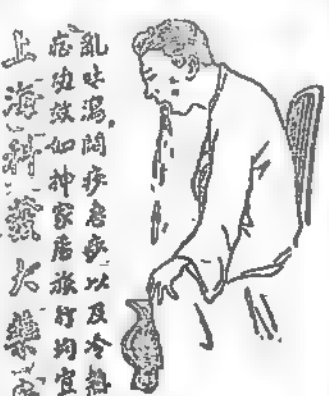 亂吐瀉,悶痧急痧以及冷熱
症功效如神家居旅行均宜
上海科發大藥